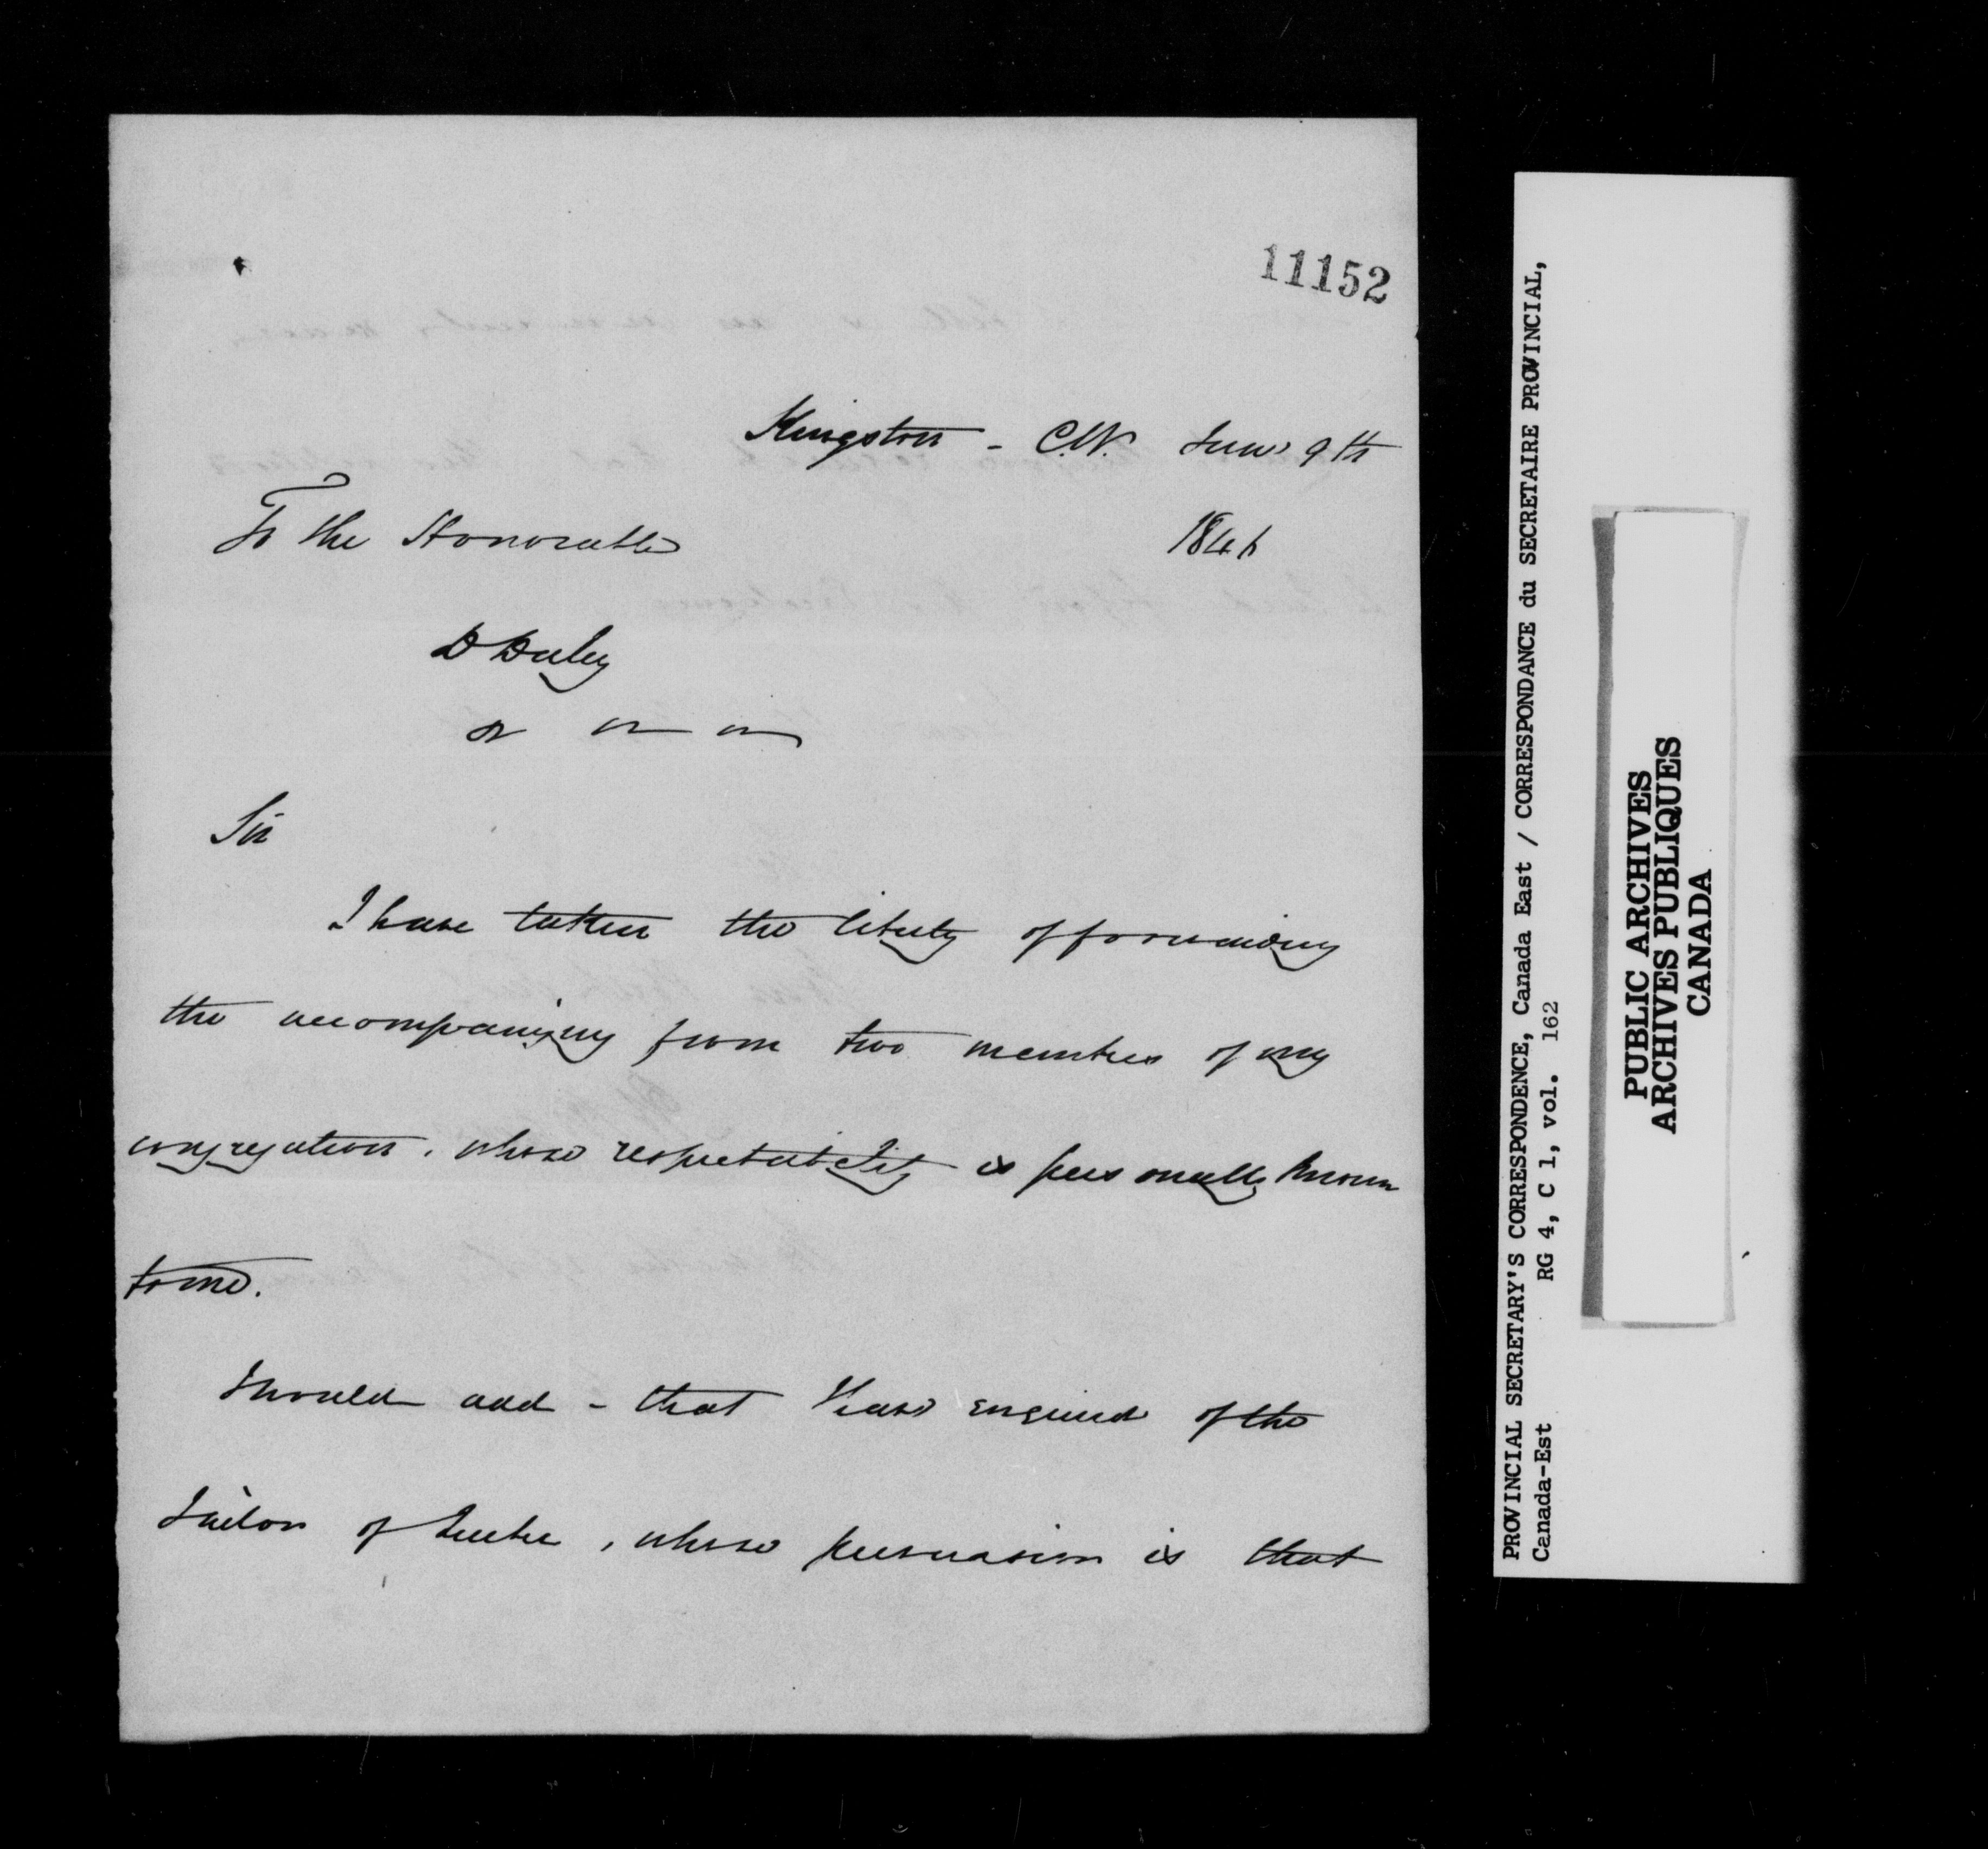 11152
Kingston - C.W. June 9th
To the Honorable
1846
D Daly
Sir
I have taken the liberty of forwarding
the accompanying from two members of my
congregation, whose respectability is personally known
to me.
I would add - that I have enquired of the
Jailor of Quebec, whose persuasion is that
PROVINCIAL SECRETARY'S CORRESPONDENCE, Canada East / CORRESPONDANCE du SECRETAIRE PROVINCIAL,
Canada-Est RG 4, C 1, vol. 162
PUBLIC ARCHIVES
ARCHIVES PUBLIQUES
CANADA